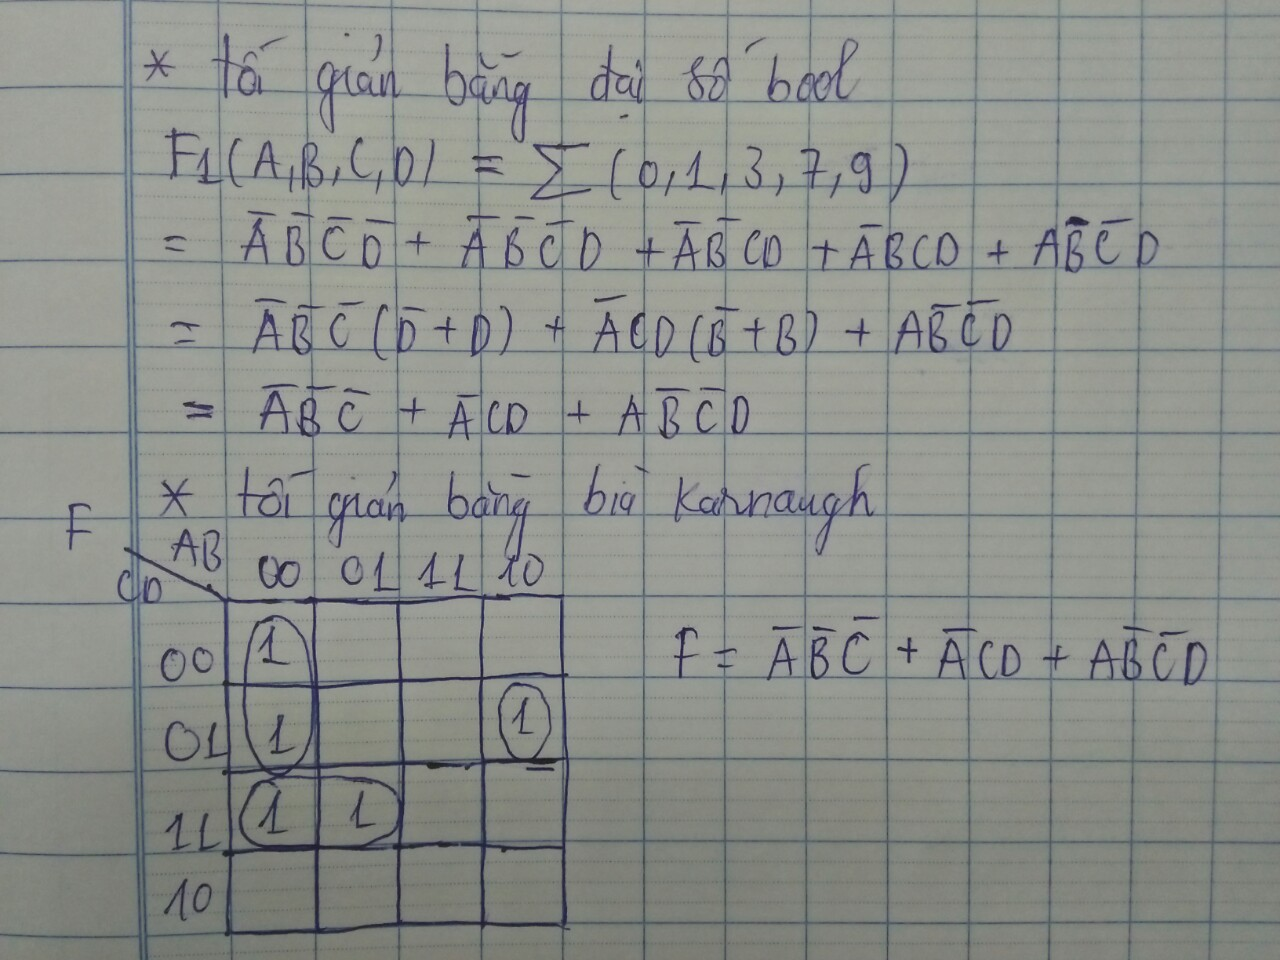 * tối giản bằng đại số bool
F1(A,B,C,D) = ∑(0,1,3,7,9)
= A̅B̅C̅D̅ + A̅B̅C̅D + A̅B̅CD + A̅BCD + AB̅C̅D
= A̅B̅C̅(D̅+D) + A̅CD(B̅+B) + AB̅C̅D
= A̅B̅C̅ + A̅CD + AB̅C̅D
* tối giản bằng bìa Karnaugh
F AB
CD 00 01 11 10
00 1
F = A̅B̅C̅ + A̅CD + AB̅C̅D
01 1 1
11 1 1
10